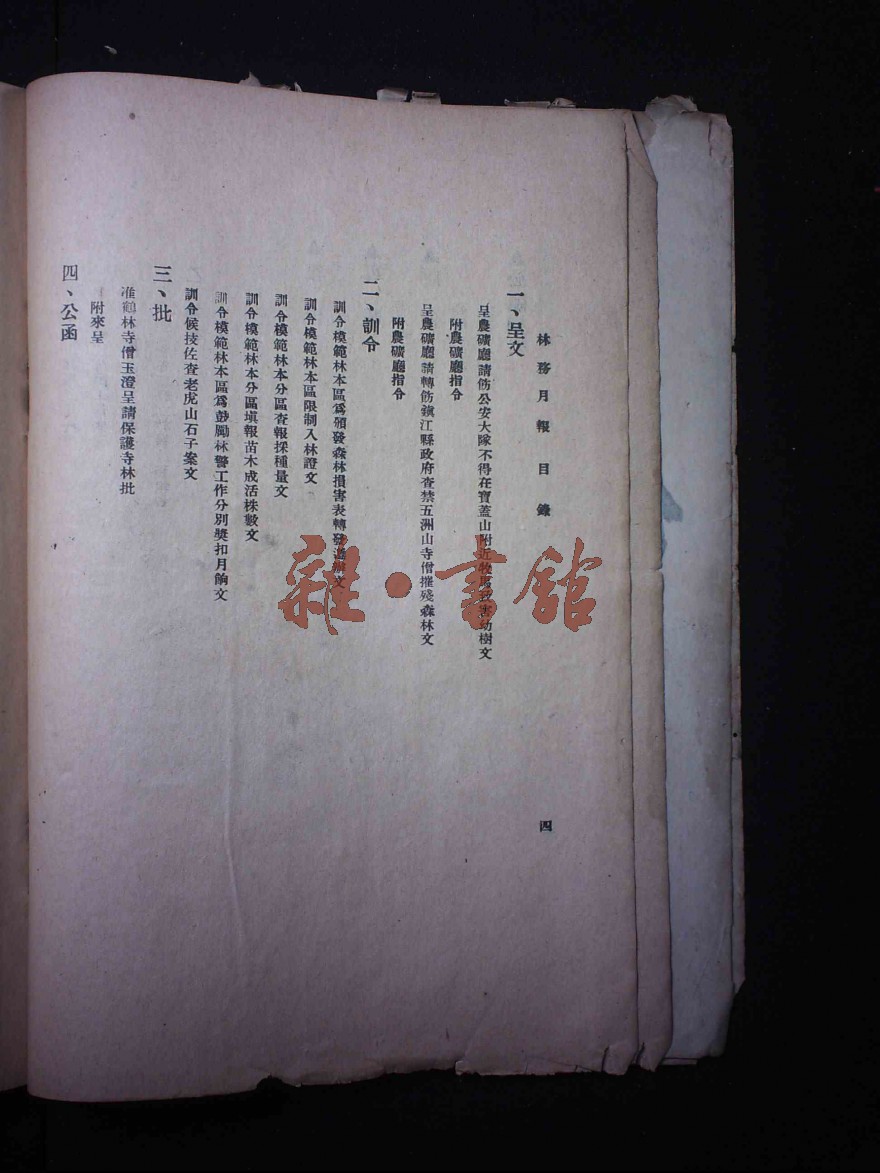 林務月報目錄
四
一、呈文
呈農礦廳請飭公安大隊不得在寶蓋山附近牧馬致害幼樹文
附農礦廳指令
呈農礦廳請轉飭鎮江縣政府查禁五洲山寺僧摧殘森林文
附農礦廳指令
二、訓令
訓令模範林本區爲頒發森林損害表轉發文
訓令模範林本區限制入林證文
訓令模範林本分區查報採種量文
訓令模範林本分區塡報苗木成活株數文
訓令模範林本區爲鼓勵林警工作分別獎扣月餉文
訓令候技佐查老虎山石子案文
三、批
准鶴林寺僧玉澄呈請保護寺林批
附來呈
四、公函
雜·書館